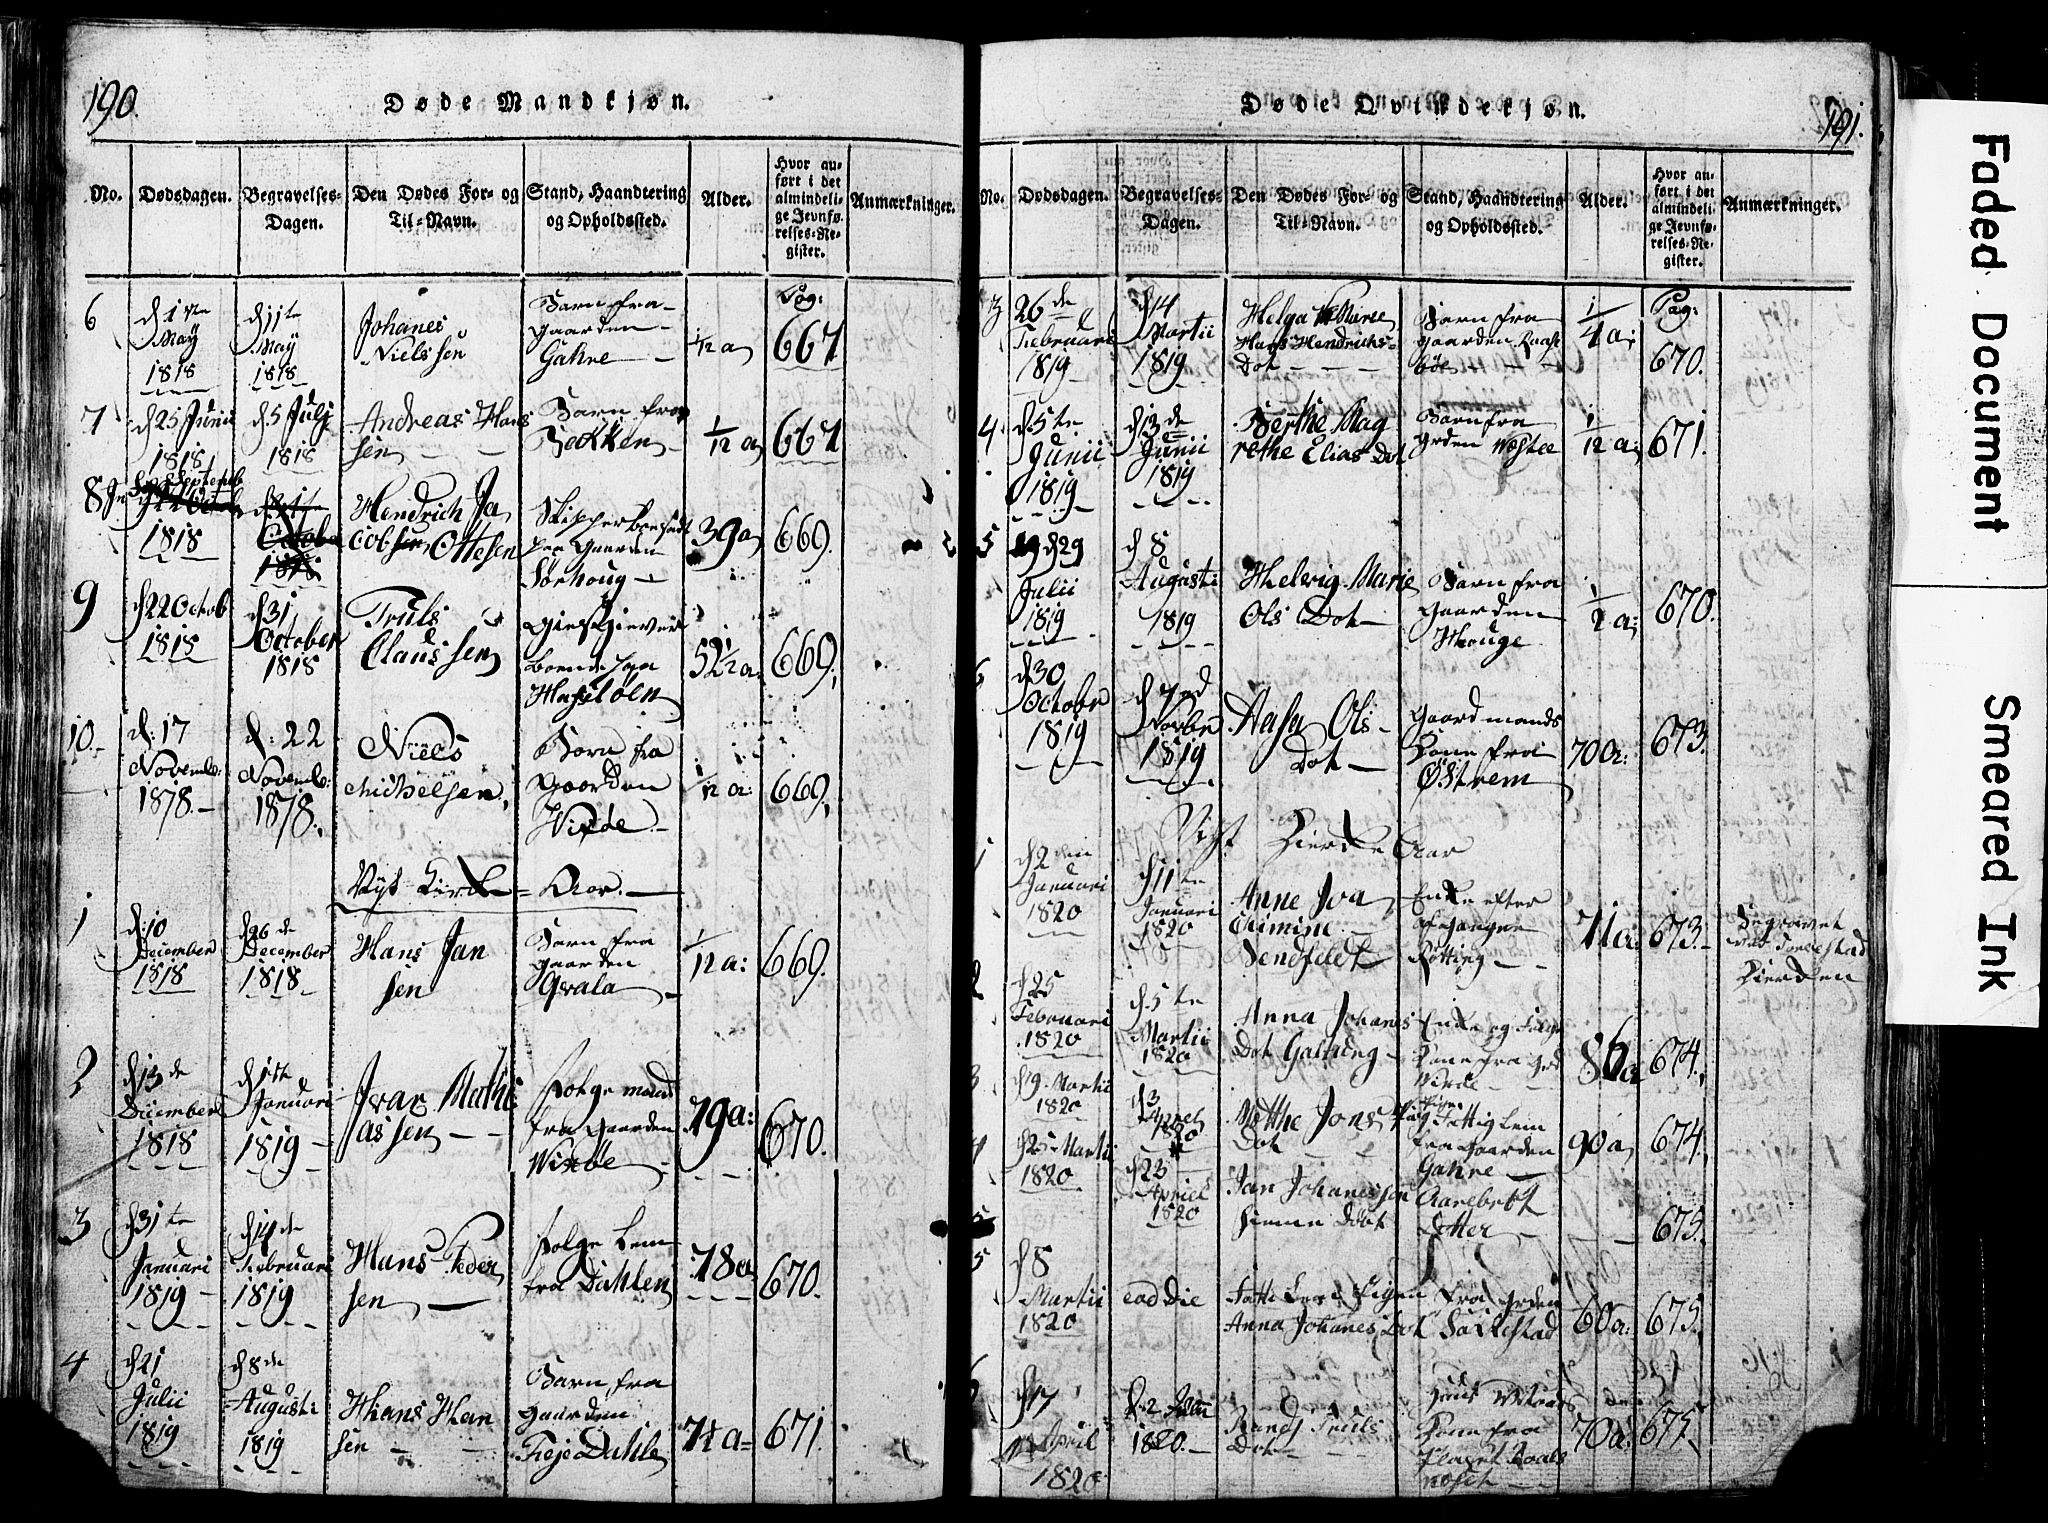 190.
Døde Mandkjøn.
No.
Dødsdagen.
Begravelses-
Dagen.
Den Dødes For- og
Til-Navn.
Stand, Haandtering
og Opholdssted.
Alder.
Hvor an-
ført i det
almindeli-
ge Jevnfø-
relses-Re-
gister.
Anmærkninger.
6
May
1818
d 11te
May
1818
Johanes
Nielssen
Barn fra
Gaarden
Gahre
1/12 a
Pag:
667
7
d 25 Junii
1818
d 5 Julj
1818
Andreas Hans
sen
Barn fra
Bakken
1/12 a
667
8
Septemb
1818
Octobr
1818
Hendrich Ja
cobsen Ottesen
Skipper
paa Gaarden
Sørhoug
39 a
669.
9
d 22 Octob
1818
d 31
October
1818
Truls
Claussen
boende paa
Hasseløen
52 1/2 a:
669.
10.
d. 17
Novemb:
1818.
d: 22
Novemb:
1818.
Niels
Michelsen
Barn fra
Gaarden
Wixde
1/12 a:
669.
Nyt Kirke-Aar.
1
d: 10
December
1818
d 26de
December
1818
Hans Jan
sen
Barn fra
Gaarden
Qvala
1/12 a:
669.
2
d 13de
December
1818
d 1ste
Januari
1819
Ivar Mathi
assen
Folge mand
fra Gaarden
Wixøe
79 a:
670.
3
d 31te
Januari
1819
d 14de
Februari
1819
Hans Peder
sen
Folge Lem
fra Dahlen
78 a
670.
4
d 21
Julii
1819
d 8de
Augusti
1819
Hans Han
sen
Barn fra
Gaarden
Feje Dahle
671.
191.
Døde Qvindekjøn.
No.
Dødsdagen.
Begravelses-
Dagen.
Den Dødes For- og
Til-Navn.
Stand, Haandtering
og Opholdssted.
Alder.
Hvor an-
ført i det
almindeli-
ge Jevnfø-
relses-Re-
gister.
Anmærkninger.
3
26de
Februari
1819
d 14
Martii
1819
Helga
Hans Hendrichs-
Dot
Barn fra
gaarden
1/4 a:
Pag:
670.
4
d. 5te
Junii
1819
d 13de
Junii
1819
Berthe Mag
rethe Elias Dot
Barn fra
Grden
1/12 a:
671.
5
d 29
Julii
1819
d 8
Augusti
1819
Helvig Marie
Ols Dot
Barn fra
Gaarden
Houge
1/2 a:
670.
6
d 30
Octobr
1819
d 7
Novbr
1819
Aasa Ols
Dot
Gaardmands
Kone fra
Østrem
70 a:
673
Nyt Kierke Aar
1
d 2den
Januari
1820
d 11te
Januari
1820
Anne
Sendfeldt
Enke efter
afgangne
Rotting
71 a:
673.
Begravet
ved Torvestad
Kierken
2
d 25
Februari
1820
d. 5te
Martii
1820
Anna Johanes
Dot
Enke og Folge
Kone fra Grd
Wixde
86 a
674.
3
d 9 Martii
1820
d 3
Aprill
1820
Jons
Dot
Fattig Lem
fra Gaarden
Gahre
90 a
674.
4
d 25 Martii
1820
d 23
Apriel
1820
Jan Johanessen
hienne Døbt
Dotter
675.
5
d 8
Martii
1820
eod die
Pigen
Anna Johanes Dot
fra Grden
60 a:
675.
6
d 17
April
1820
1820.
Truls
Dot
Kone fra
70 a:
675.
Faded Document
Smeared Ink